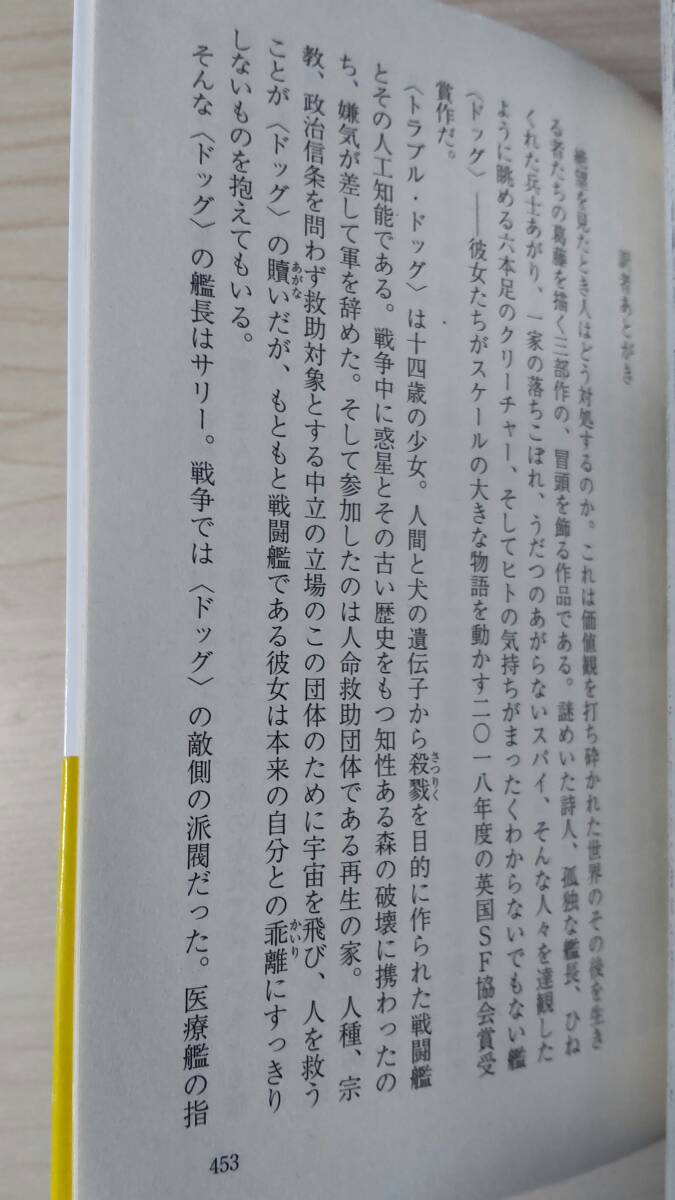 訳者あとがき
絶望を見たとき人はどう対処するのか。これは価値観を打ち砕かれた世界のその後を生き
る者たちの葛藤を描く三部作の、冒頭を飾る作品である。謎めいた詩人、孤独な艦長、ひね
くれた兵士あがり、一家の落ちこぼれ、うだつのあがらないスパイ、そんな人々を達観した
ように眺める六本足のクリーチャー、そしてヒトの気持ちがまったくわからないでもない艦
〈ドッグ〉――彼女たちがスケールの大きな物語を動かす二〇一八年度の英国ＳＦ協会賞受
賞作だ。
〈トラブル・ドッグ〉は十四歳の少女。人間と犬の遺伝子から殺戮さつりくを目的に作られた戦闘艦
とその人工知能である。戦争中に惑星とその古い歴史をもつ知性ある森の破壊に携わったの
ち、嫌気が差して軍を辞めた。そして参加したのは人命救助団体である再生の家。人種、宗
教、政治信条を問わず救助対象とする中立の立場のこの団体のために宇宙を飛び、人を救う
ことが〈ドッグ〉の贖あがないだが、もともと戦闘艦である彼女は本来の自分との乖離かいりにすっきり
しないものを抱えてもいる。
そんな〈ドッグ〉の艦長はサリー。戦争では〈ドッグ〉の敵側の派閥だった。医療艦の指
453